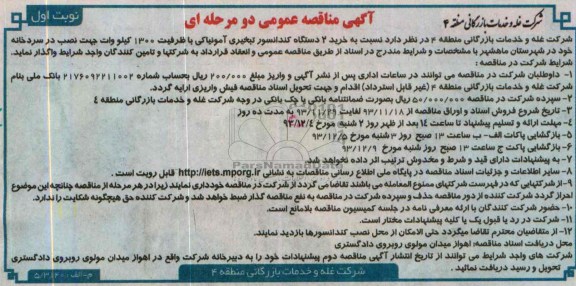 شرکت غله و خدمات بازرگانی منطقه ۴
آگهی مناقصه عمومی دو مرحله ای
نوبت اول
شرکت غله و خدمات بازرگانی منطقه ۴ در نظر دارد نسبت به خرید ۲ دستگاه کندانسور تبخیری آمونیاکی با ظرفیت ۱۳۰۰ کیلو وات جهت نصب در سردخانه
خود در شهرستان ماهشهر با مشخصات و شرایط مندرج در اسناد از طریق مناقصه عمومی و انعقاد قرارداد به شرکتها و تامین کنندگان واجد شرایط واگذار نماید.
شرایط شرکت در مناقصه :
۱- داوطلبان شرکت در مناقصه می توانند در ساعات اداری پس از نشر آگهی و واریز مبلغ ۲۰۰/۰۰۰ ریال بحساب شماره ۲۱۷۶۰۹۲۲۱۱۰۰۲ بانک ملی بنام
شرکت غله و خدمات بازرگانی منطقه ۴ (غیر قابل استرداد) اقدام و جهت تحویل اسناد مناقصه فیش واریزی ارایه گردد.
۲- سپرده شرکت در مناقصه ۵۰/۰۰۰/۰۰۰ ریال بصورت ضمانتنامه بانکی یا چک بانکی در وجه شرکت غله و خدمات بازرگانی منطقه ٤
۳- تاریخ شروع فروش اسناد و اوراق مناقصه از ۹۳/۱۱/۱۸ لغایت به مدت ده روز
۴- مهلت ارائه و تسلیم پیشنهاد تا ساعت ۱۴ بعد از ظهر روز ۲ شنبه مورخ ۹۳/۱۲/۴
۵- بازگشایی پاکات الف- ب ساعت ۱۳ صبح روز ۳ شنبه مورخ ۹۳/۱۲/۵
۶- بازگشایی پاکت ج ساعت ۱۳ صبح روز شنبه مورخ ۹۳/۱۲/۹
۷- به پیشنهادات دارای قید و شرط و مخدوش ترتیب اثر داده نخواهد شد
۸- سایر اطلاعات و جزئیات اسناد مناقصه در پایگاه ملی اطلاع رسانی مناقصات به نشانی http://iets.mporg.ir قابل رویت است .
۹- از شرکتهایی که در فهرست شرکتهای ممنوع المعامله می باشند تقاضا می گردد از شرکت در مناقصه خودداری نمایند زیرا در هر مرحله از مناقصه چنانچه این موضوع
احراز گردد شرکت کننده از دور مناقصه حذف و سپرده شرکت در مناقصه به نفع مناقصه گذار ضبط خواهد شد و شرکت کننده حق هیچگونه شکایت را ندارد.
۱۰- حضور شرکت کنندگان با ارئه معرفی نامه در جلسه کمیسیون مناقصه بلامانع است.
۱۱- شرکت در رد یا قبول یک یا کلیه پیشنهادات مختار است.
۱۲- از متقاضیان محترم تقاضا میگردد حتی الامکان از محل نصب کندانسورها بازدید نمایند.
محل دریافت اسناد مناقصه: اهواز میدان مولوی روبروی دادگستری
شرکت های واجد شرایط می توانند از تاریخ انتشار آگهی مناقصه دوم پیشنهادات خود را به دبیرخانه شرکت واقع در اهواز میدان مولوی روبروی دادگستری
تحویل و رسید دریافت نمائید .
شرکت غله و خدمات بازرگانی منطقه ۴